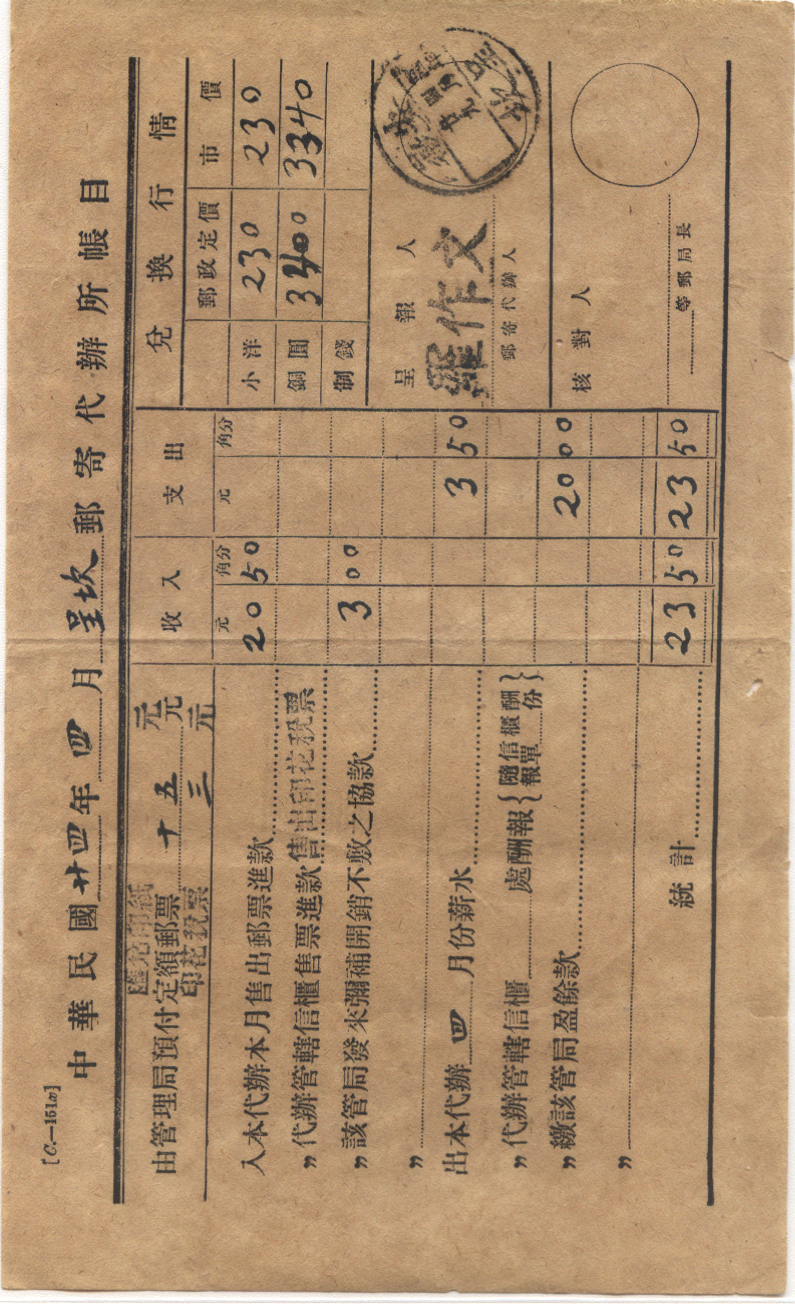 [C.—151a]
中華民國廿四年四月呈坎郵寄代辦所帳目
由管理局預付定額郵票 十五元
匯兌印紙 元
印花稅票 三元
收入 支出
元 角分 元 角分
入本代辦本月售出郵票進款 20 50
〃代辦管轄信櫃售票進款售出印花稅票
〃該管局發來彌補開銷不敷之協款 3 00
〃
出本代辦四月份薪水 3 50
〃代辦管轄信櫃 處酬報{隨信櫃酬報單份}
〃繳該管局盈餘款 20 00
〃
統計 23 50 23 50
兌換行情
郵政定價 市價
小洋 230 230
銅圓 3400 3340
制錢
呈報人
羅作文
郵寄代辦人
核對人
等郵局長